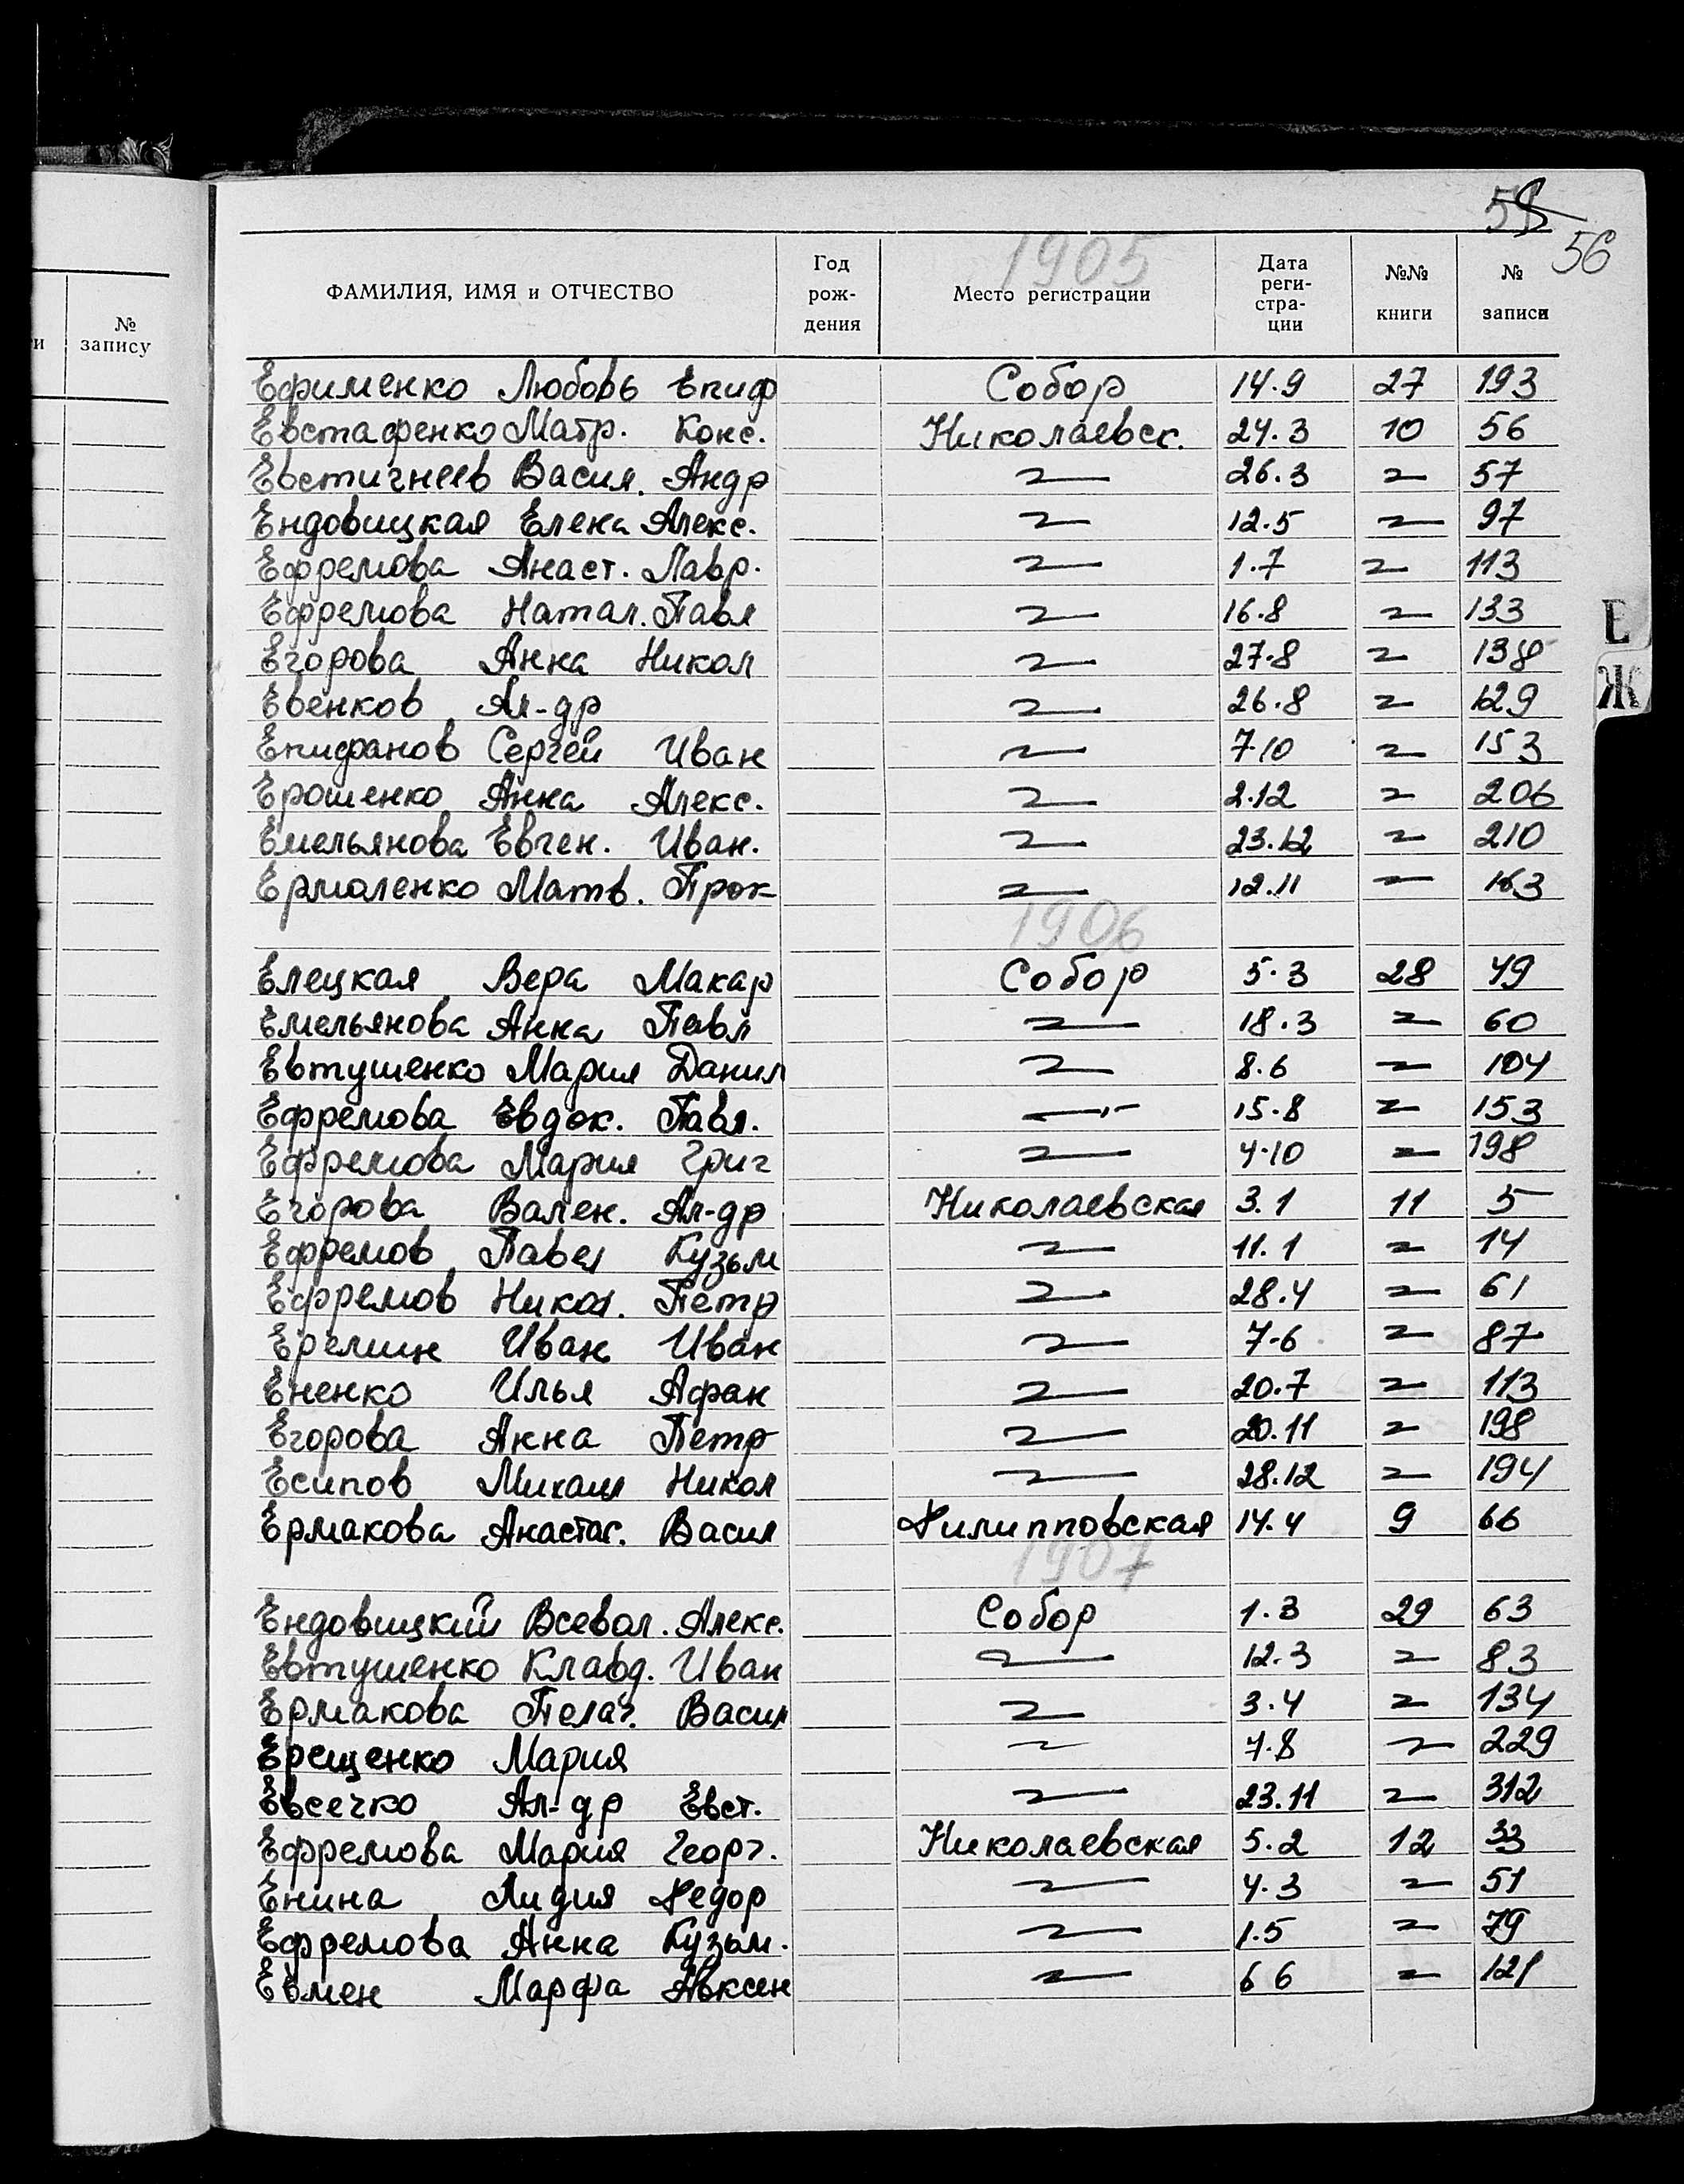 58
56
1905
ФАМИЛИЯ, ИМЯ и ОТЧЕСТВО Год рождения Место регистрации Дата регистрации №№ книги № записи
и № запису
Ефименко Любовь Епиф Собор 14.9 27 193
Евстафенко Матр. Конс. Николаевск. 24.3 10 56
Евстигнеев Васил. Андр —〃— 26.3 〃 57
Ендовицкая Елена Алекс. —〃— 12.5 〃 97
Ефремова Анаст. Лавр. —〃— 1.7 〃 113
Ефремова Натал. Павл —〃— 16.8 〃 133
Егорова Анна Никол —〃— 27.8 〃 138
Евенков Ал-др —〃— 26.8 〃 129
Епифанов Сергей Иван —〃— 7.10 〃 153
Ерошенко Анна Алекс. —〃— 2.12 〃 206
Емельянова Евген. Иван. —〃— 23.12 〃 210
Ермоленко Матв. Прок —〃— 12.11 〃 163
1906
Елецкая Вера Макар Собор 5.3 28 49
Емельянова Анна Павл —〃— 18.3 〃 60
Евтушенко Мария Данил —〃— 8.6 〃 104
Ефремова Евдок. Павл. —〃— 15.8 〃 153
Ефремова Мария Григ —〃— 4.10 〃 198
Егорова Вален. Ал-др Николаевская 3.1 11 5
Ефремов Павел Кузьм —〃— 11.1 〃 14
Ефремов Никол. Петр —〃— 28.4 〃 61
Еремин Иван Иван —〃— 7-6 〃 87
Ененко Илья Афан —〃— 20.7 〃 113
Егорова Анна Петр —〃— 20.11 〃 198
Есипов Михаил Никол —〃— 28.12 〃 194
Ермакова Анастас. Васил Филипповская 14.4 9 66
1907
Ендовицкий Всевол. Алекс. Собор 1.3 29 63
Евтушенко Клавд. Иван —〃— 12.3 〃 83
Ермакова Пелаг. Васил —〃— 3.4 〃 134
Ерещенко Мария —〃— 7.8 〃 229
Евсечко Ал-др Евст. —〃— 23.11 〃 312
Ефремова Мария Георг. Николаевская 5.2 12 33
Енина Лидия Федор —〃— 4.3 〃 51
Ефремова Анна Кузьм. —〃— 1.5 〃 79
Евмен Марфа Авксен —〃— 6 6 〃 121
Е
Ж